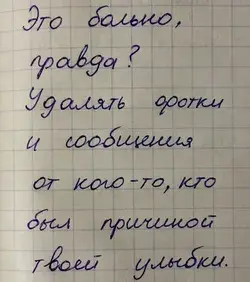 Это больно,
правда?
Удалять фотки
и сообщения
от кого-то, кто
был причиной
твоей улыбки.